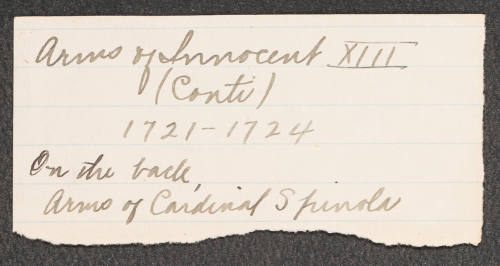 Arms of Innocent XIII
(Conti)
1721-1724
On the back,
Arms of Cardinal Spinola